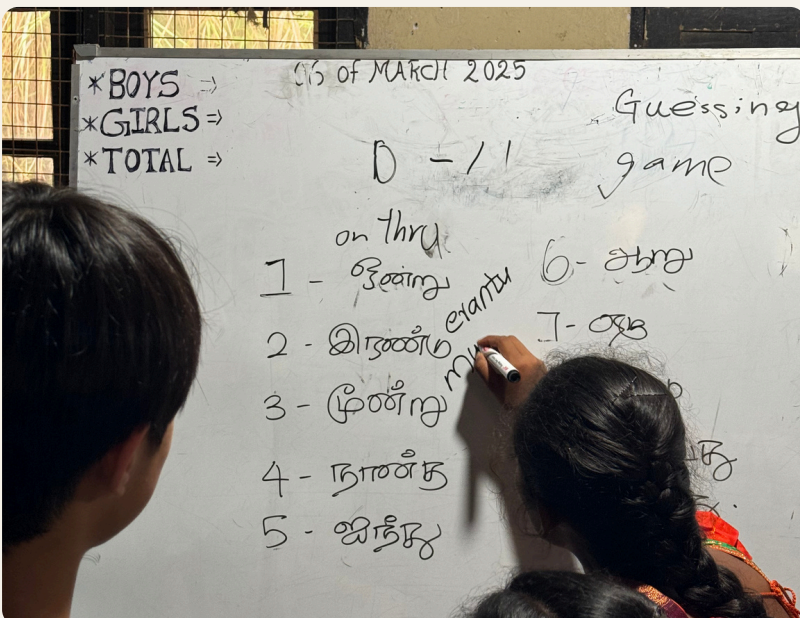 *BOYS ⇒
*GIRLS ⇒
*TOTAL ⇒
of MARCH 2025
Guessing
game
on thru
1 - ஒன்று
2 - இரண்டு
erantu
3 - மூன்று
4 - நான்கு
5 - ஐந்து
6 - ஆறு
7 - ஏழு